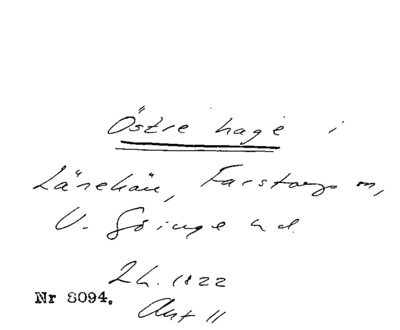 Östre hage i
Länehäu, Farstorps sn,
V. Göinge hd.
Lh. 1822
Akt 11
Nr 8094.